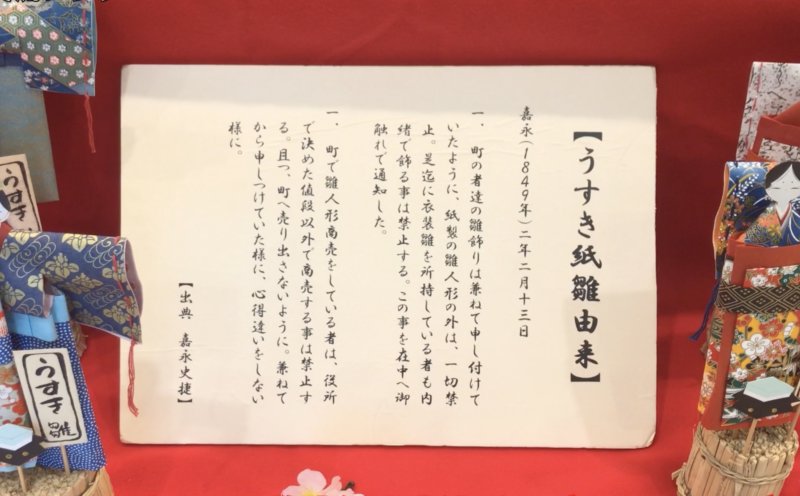 【うすき紙雛由来】
嘉永(1849年)二年二月十三日
一、町の者達の雛飾りは兼ねて申し付けて
いたように、紙製の雛人形の外は、一切禁
止。是迄に衣装雛を所持している者も内
緒で飾る事は禁止する。この事を在中へ御
触れで通知した。
一、町で雛人形商売をしている者は、役所
で決めた値段以外で商売する事は禁止す
る。且つ、町へ売り出さないように。兼ねて
から申しつけていた様に、心得違いをしない
様に。
【出典 嘉永史捷】
うすき
うすき雛